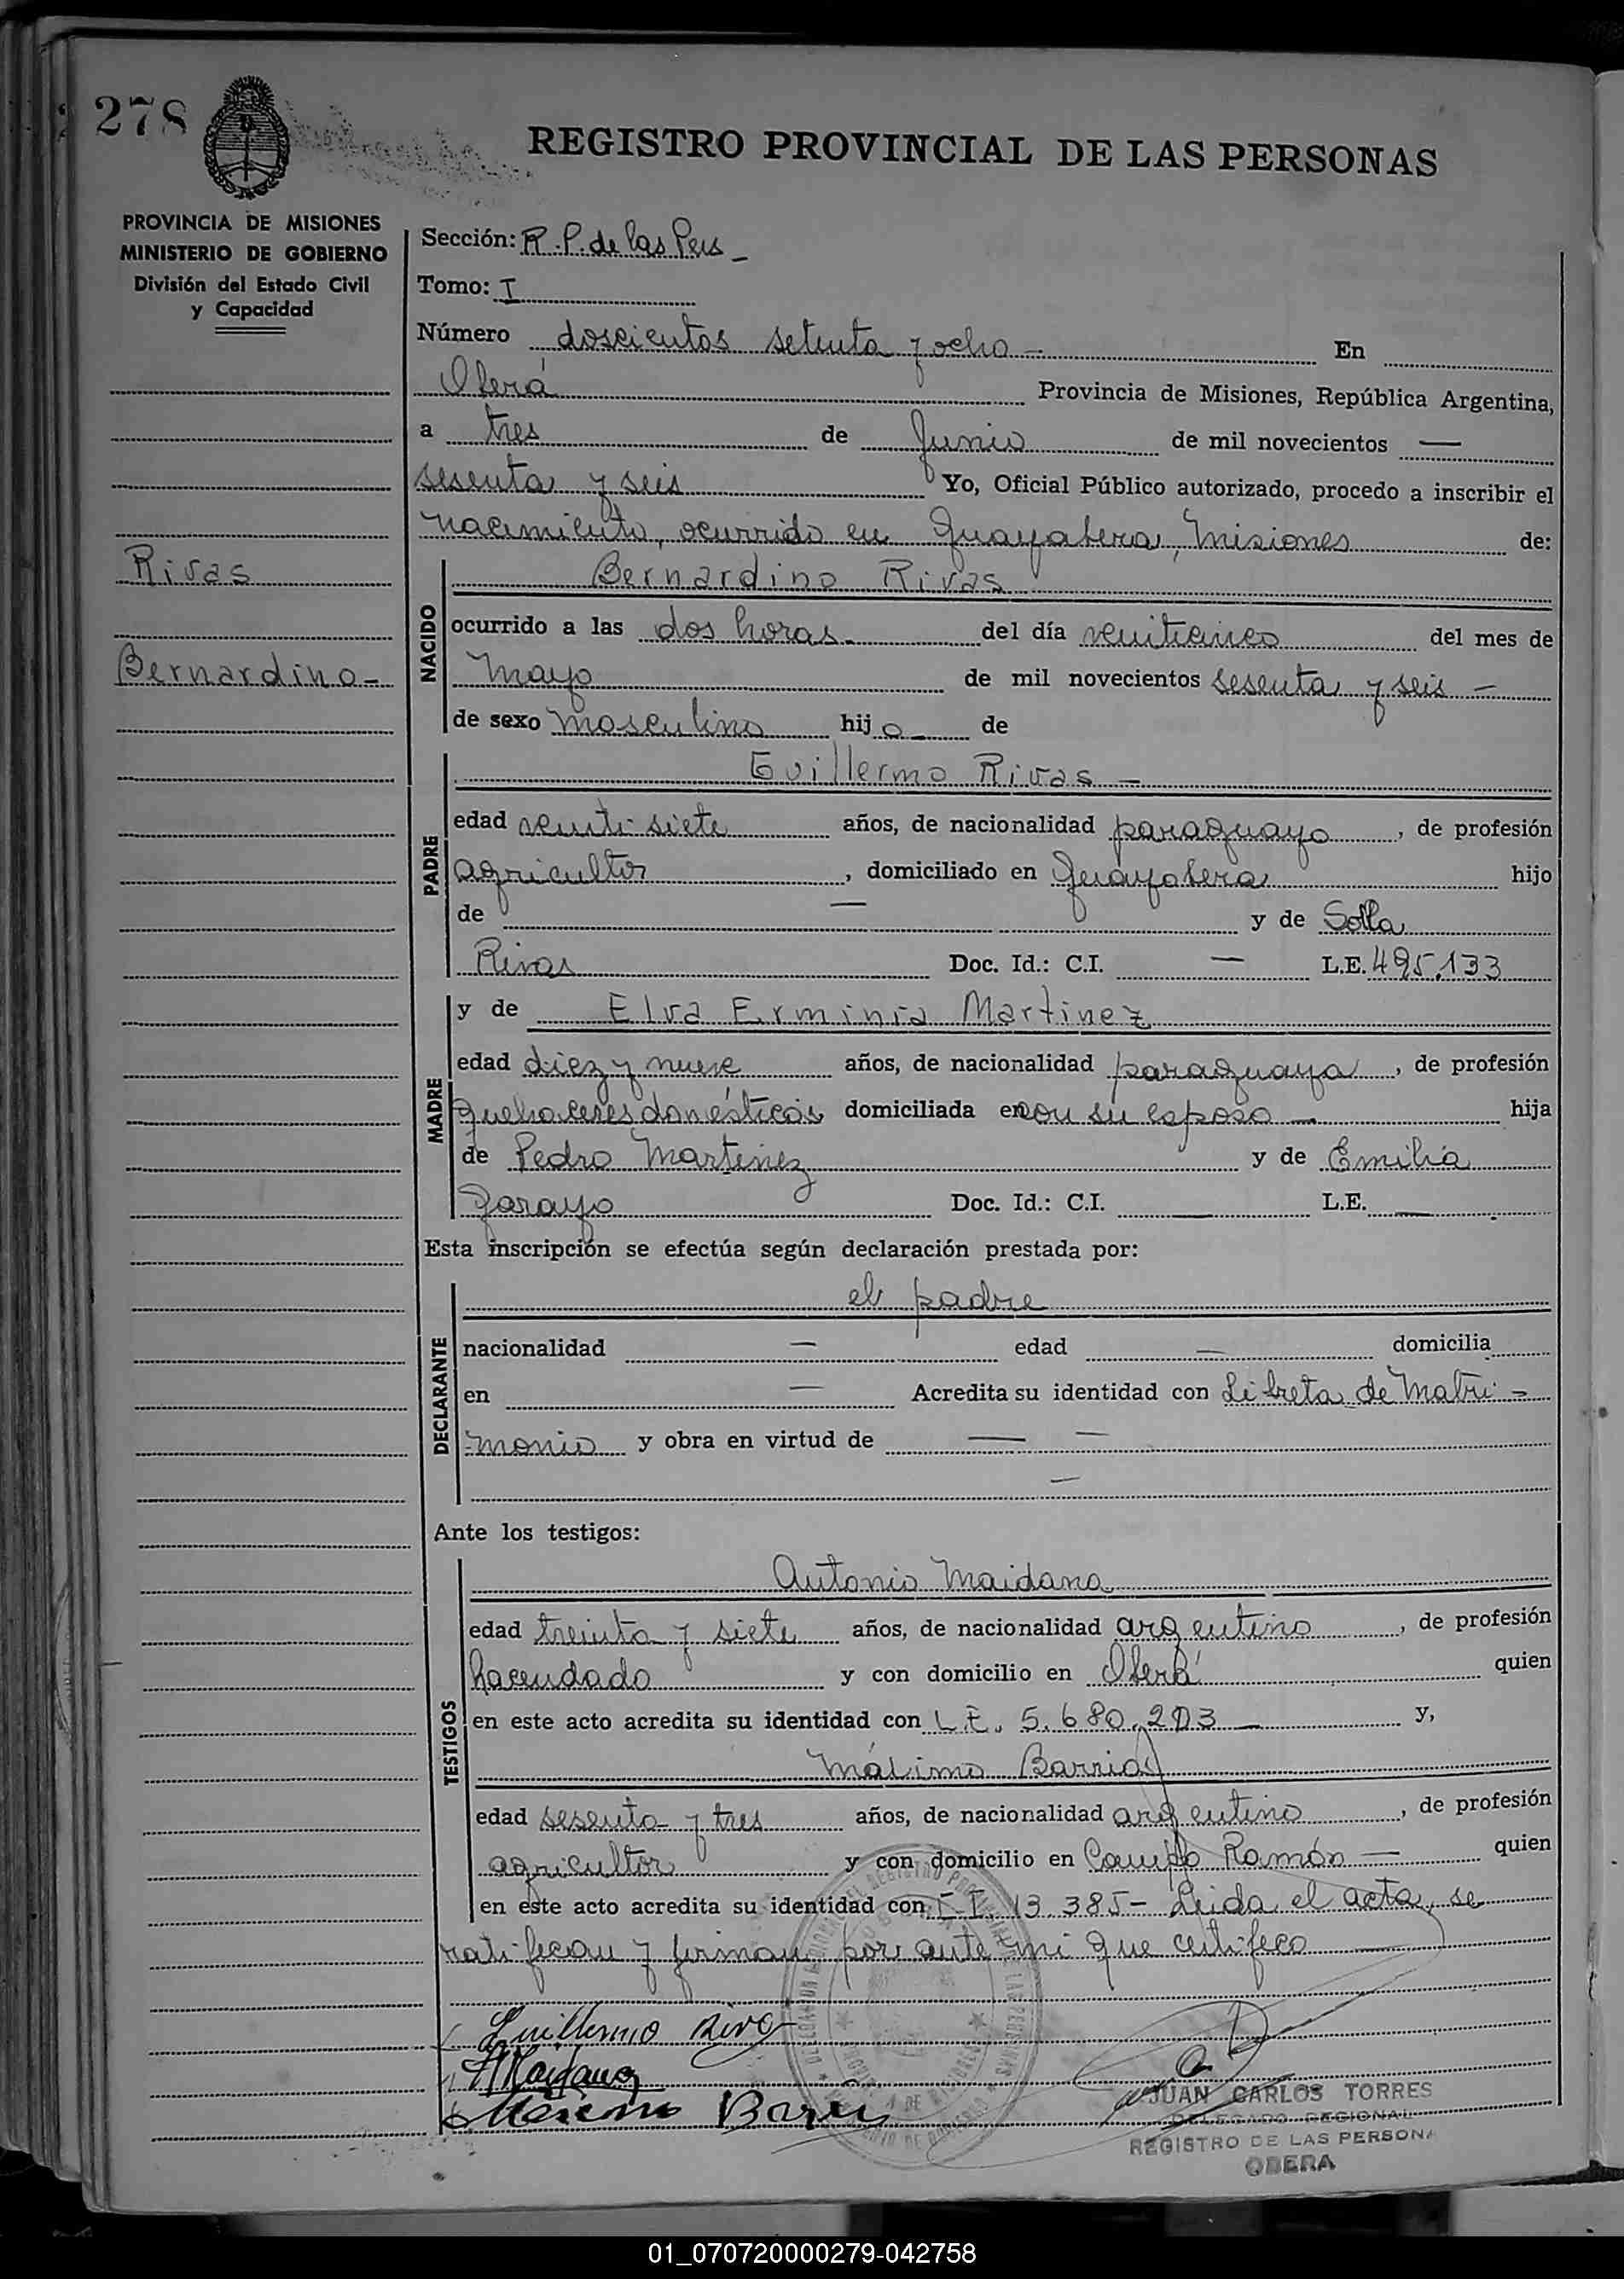 278
REGISTRO PROVINCIAL DE LAS PERSONAS
PROVINCIA DE MISIONES
MINISTERIO DE GOBIERNO
División del Estado Civil
y Capacidad
Rivas
Bernardino -
Sección: R.P. de las Pers -
Tomo: I
Número doscientos setenta y ocho - En
Oberá Provincia de Misiones, República Argentina,
a tres de Junio de mil novecientos —
sesenta y seis Yo, Oficial Público autorizado, procedo a inscribir el
nacimiento, ocurrido en Guayabera, Misiones de:
NACIDO
Bernardino Rivas
ocurrido a las dos horas - del día veinticinco del mes de
Mayo de mil novecientos sesenta y seis -
de sexo masculino hijo - de
PADRE
Guillermo Rivas -
edad veinti siete años, de nacionalidad paraguayo, de profesión
agricultor, domiciliado en Guayabera hijo
de — y de
Rivas Doc. Id.: C.I. — L.E. 495.133
MADRE
y de Elva Erminia Martinez
edad diez y nueve años, de nacionalidad paraguaya, de profesión
quehaceres domésticos domiciliada en con su esposo - hija
de Pedro Martinez y de Emilia
Doc. Id.: C.I. — L.E. —
Esta inscripción se efectúa según declaración prestada por:
DECLARANTE
el padre
nacionalidad — edad — domicilia
en — Acredita su identidad con Libreta de Matri -
monio y obra en virtud de — —
—
Ante los testigos:
TESTIGOS
Antonio Maidana
edad treinta y siete años, de nacionalidad argentino, de profesión
hacendado y con domicilio en Oberá quien
en este acto acredita su identidad con L.E. 5.680.203 — y,
Máximo
edad sesenta y tres años, de nacionalidad argentino, de profesión
agricultor y con domicilio en Campo Ramón — quien
en este acto acredita su identidad con 13.385 - Leida el acta, se
ratifican y firman por ante mi que certifico
Guillermo Rivas
AMaidana
JUAN CARLOS TORRES
DELEGADO REGIONAL
REGISTRO DE LAS PERSONA
OBERA
01_070720000279-042758